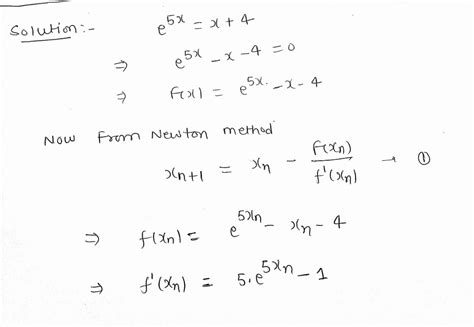 Solution:- e^5x = x + 4
⇒ e^5x - x - 4 = 0
⇒ f(x) = e^5x. - x - 4
Now From Newton method
xn+1 = xn - f(xn)/f'(xn) → ①
⇒ f(xn) = e^5xn - xn - 4
⇒ f'(xn) = 5.e^5xn - 1